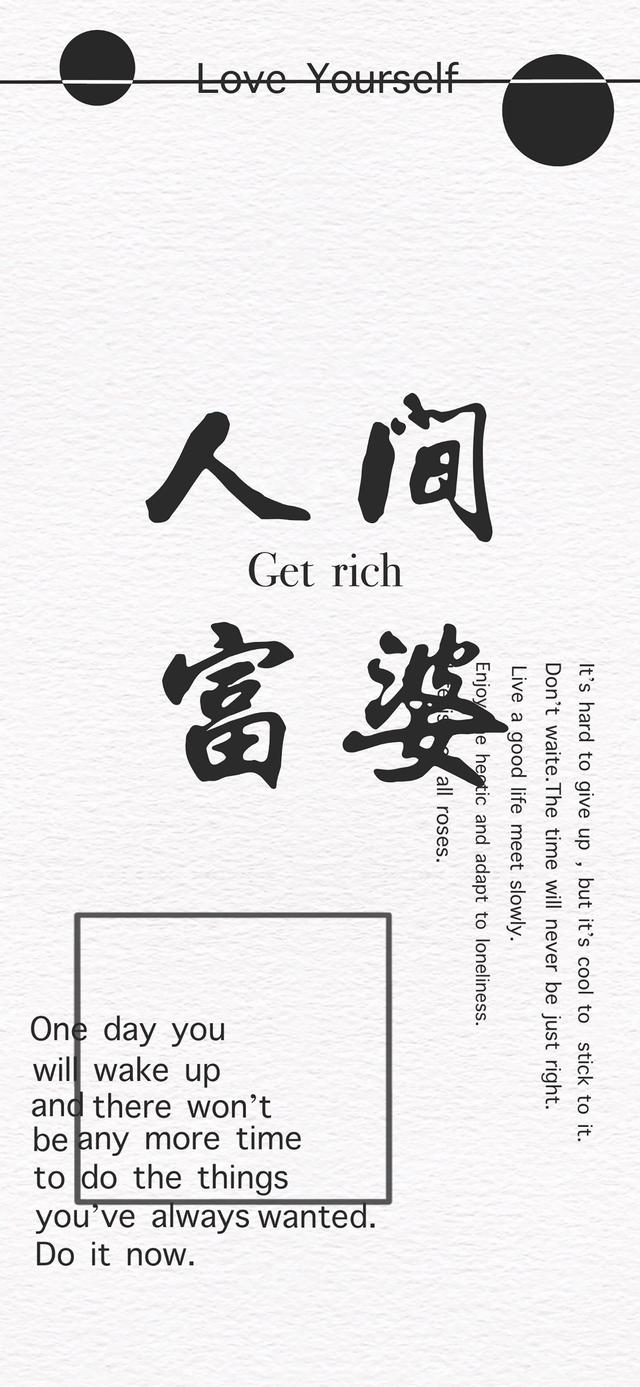 Love Yourself
人间
Get rich
富婆
It's hard to give up , but it's cool to stick to it.
Don't waite.The time will never be just right.
Live a good life meet slowly.
Enjoy hectic and adapt to loneliness.
all roses.
One day you
will wake up
and there won't
be any more time
to do the things
you've always wanted.
Do it now.